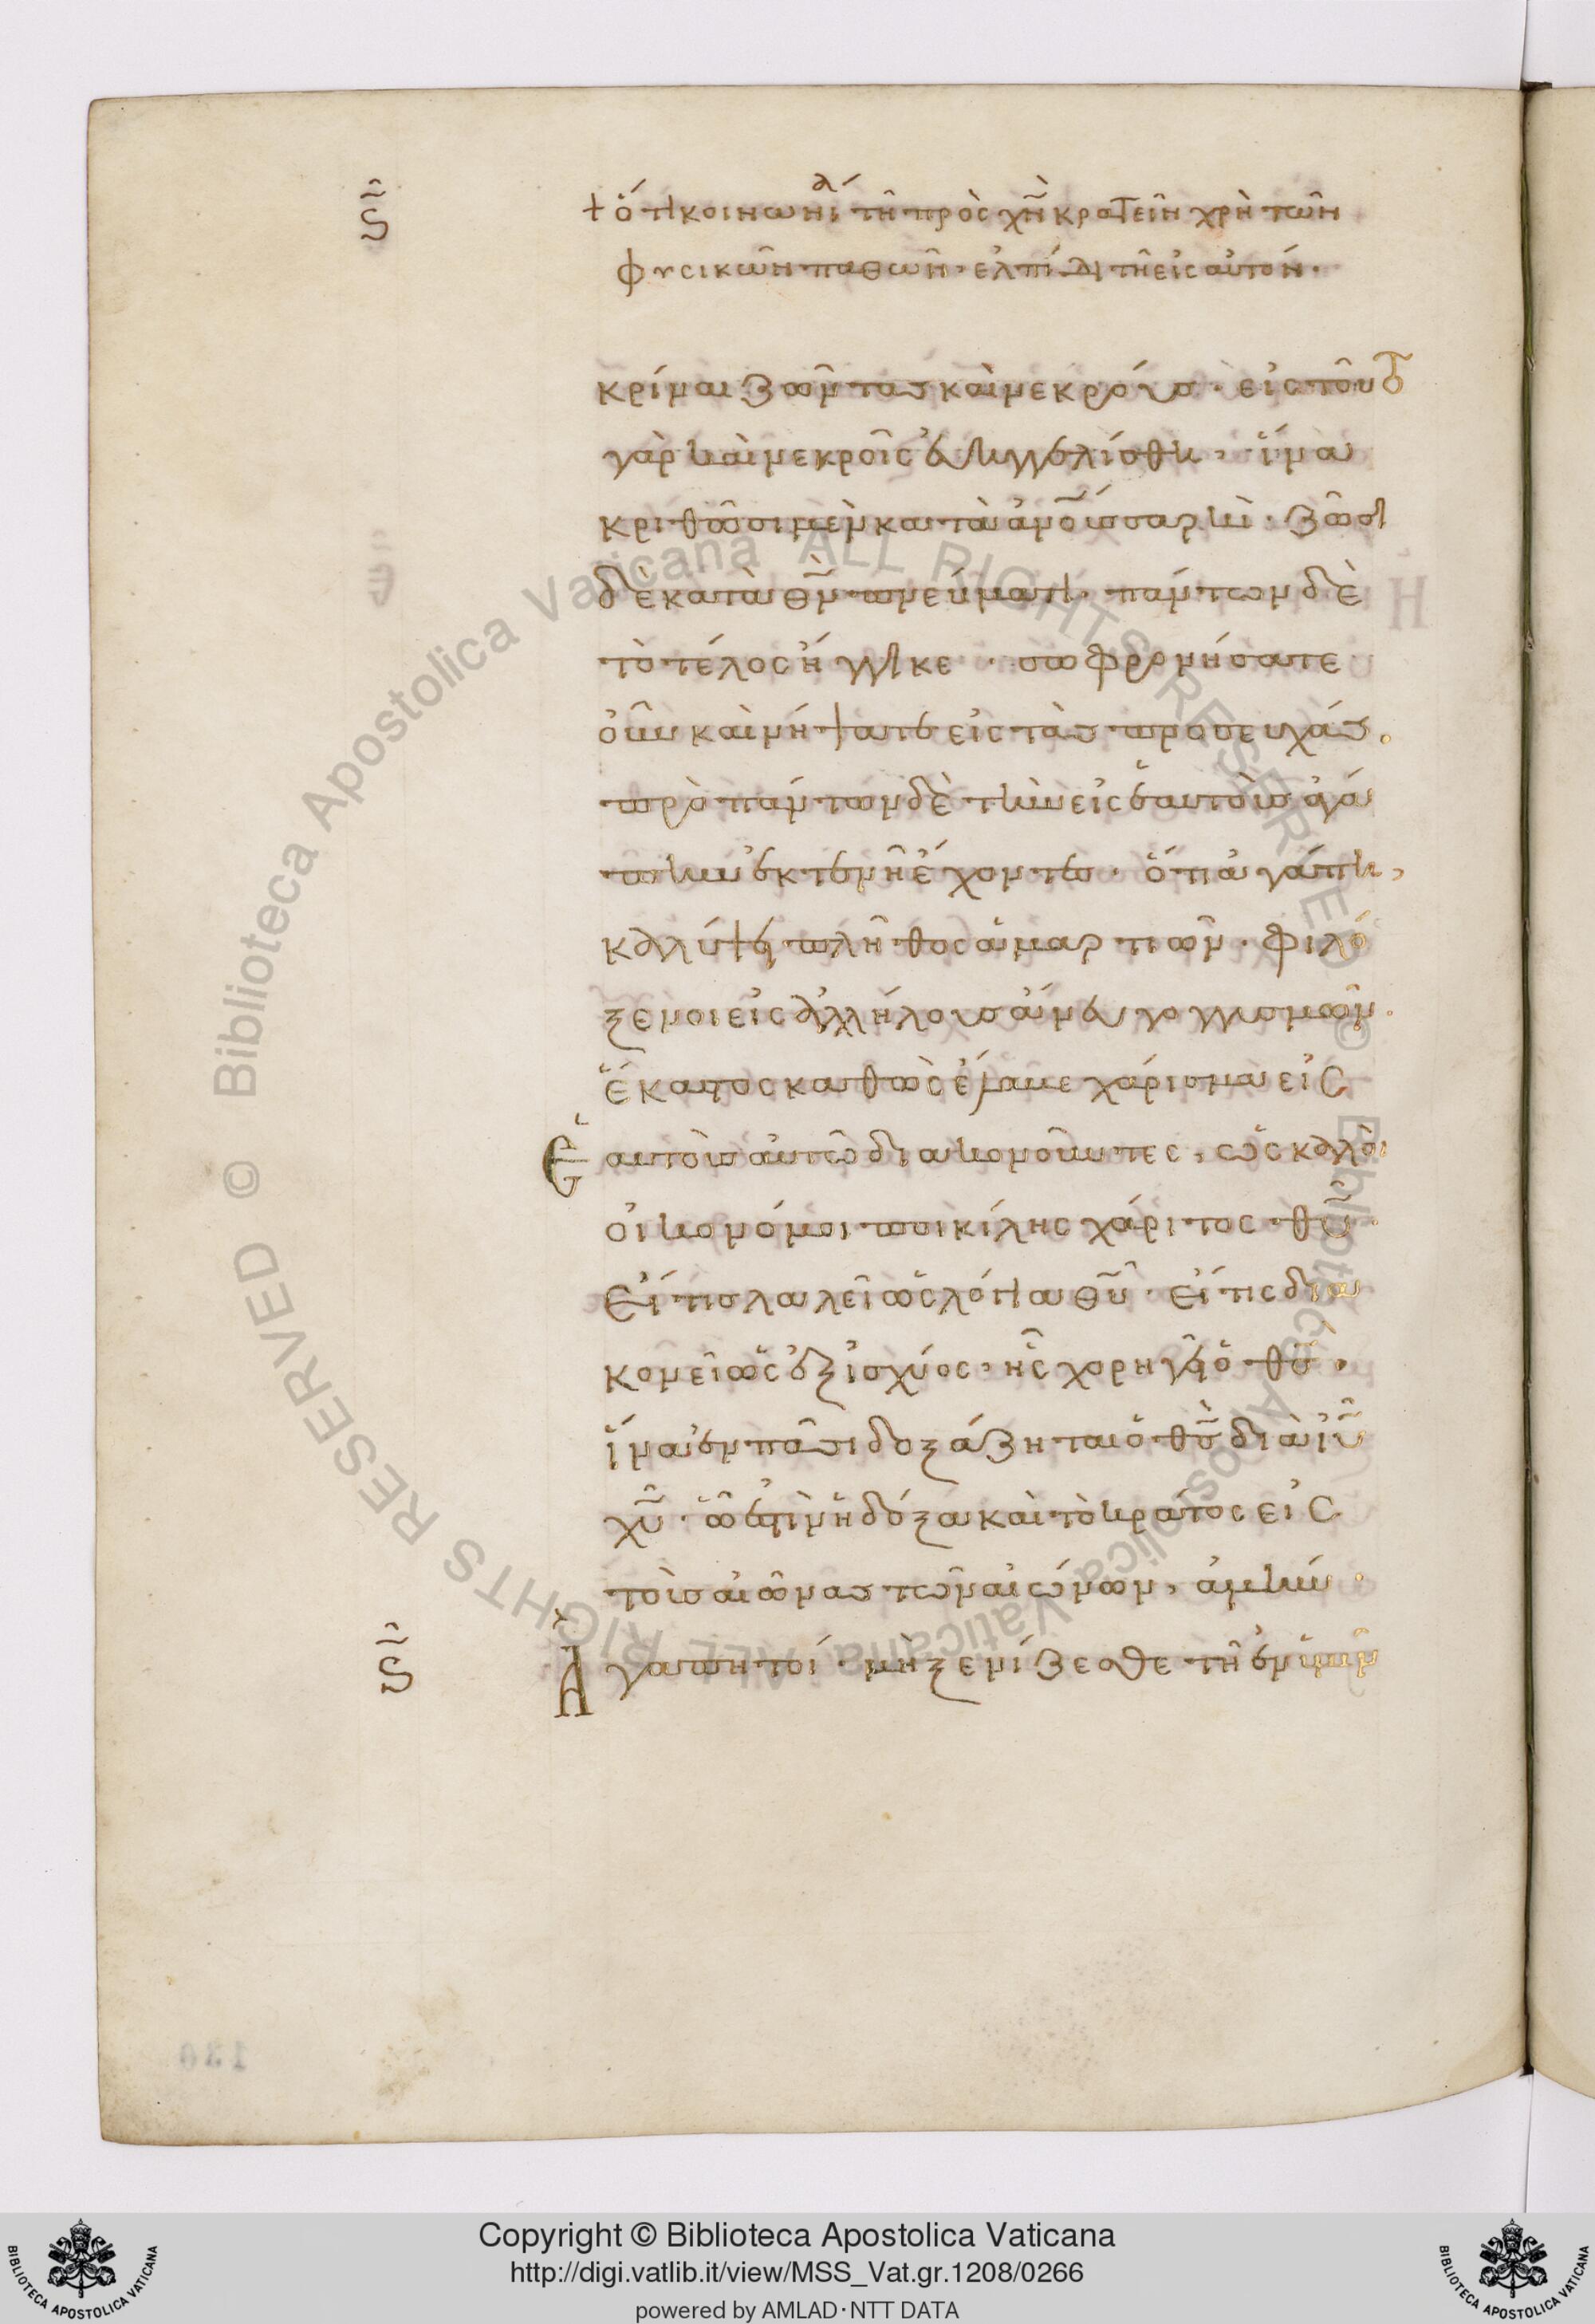 ϛ
+ ὅτι κοινωνίᾳ τῆ πρὸς χν κρατεῖν χρὴ τῶν
φυσικῶν παθῶν· ἐλπίδι τῆ εἰς αὐτόν·
κρίναι ζῶντας καὶ νεκρούς· εἰς τοῦτο
γὰρ καὶ νεκροῖς εὐηγγελίσθη, ἵνα
κριθῶσι μὲν κατὰ ἀνους σαρκὶ· ζῶσι
δὲ κατὰ θν πνεύματι· πάντων δὲ
τὸ τέλος ἤγγικε· σωφρονήσατε
οὖν καὶ νήψατε εἰς τὰς προσευχάς.
πρὸ πάντων δὲ τὴν εἰς ἑαυτοὺς ἀγά
πην ἐκτενῆ ἔχοντες· ὅτι ἀγάπη,
καλύψει πλῆθος ἁμαρτιῶν· φιλό
ξενοι εἰς ἀλλήλους ἄνευ γογγυσμῶν·
ἕκαστος καθὼς ἔλαβε χάρισμα εἰς
Ἑαυτοὺς αὐτὸ διακονοῦντες, ὡς καλοὶ
οἰκονόμοι ποικίλης χάριτος θυ·
Εἴ τις λαλεῖ ὡς λόγια θυ· εἴ τις δια
κονεῖ ὡς ἐξ ἰσχύος, ἧς χορηγεῖ ὁ θς·
ἵνα ἐν πᾶσι δοξάζηται ὁ θς διὰ ιυ
χυ· ὧ ἐστὶν ἡ δόξα καὶ τὸ κράτος εἰς
τοὺς αἰῶνας τῶν αἰώνων, ἀμήν·
ϛ
Ἀγαπητοί· μὴ ξενίζεσθε τῆ ἐν ὑμῖν
130
Copyright © Biblioteca Apostolica Vaticana
http://digi.vatlib.it/view/MSS_Vat.gr.1208/0266
powered by AMLAD·NTT DATA
BIBLIOTECA APOSTOLICA VATICANA
BIBLIOTECA APOSTOLICA VATICANA
© Biblioteca Apostolica Vaticana ALL RIGHTS RESERVED
© Biblioteca Apostolica Vaticana ALL RIGHTS RESERVED